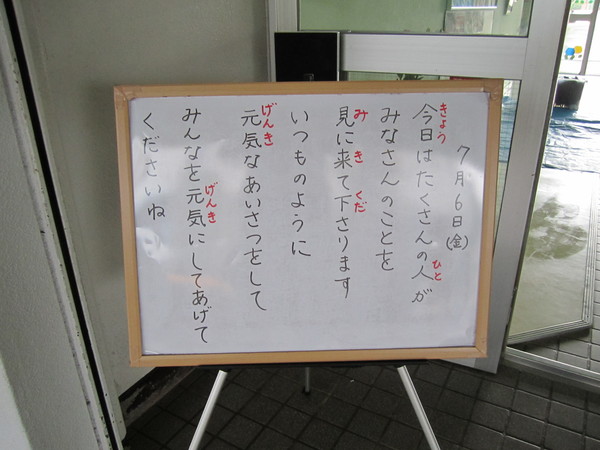 7月6日(金)
今日はたくさんの人が
きょう
ひと
みなさんのことを
見に来て下さります
み
き
くだ
いつものように
元気なあいさつをして
げんき
みんなを元気にしてあげて
げんき
くださいね